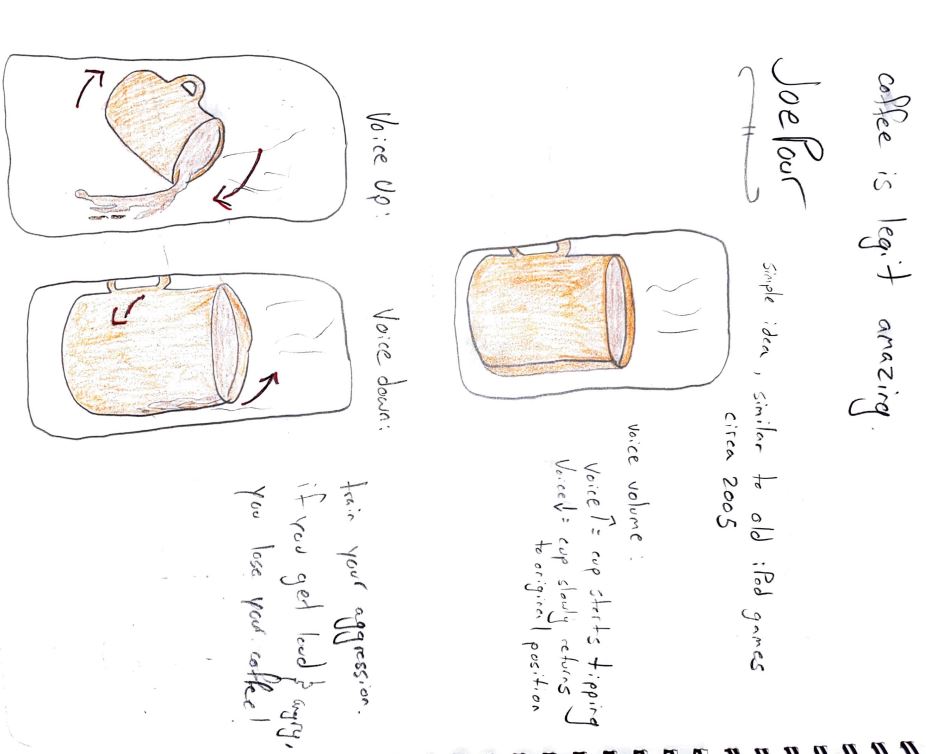 coffee is legit amazing.
JoePour
simple idea, similar to old iPod games
circa 2005
voice volume:
Voice ↑ = cup starts tipping
Voice ↓ = cup slowly returns
to original position
Voice Up:
Voice down:
train your aggression.
if you get loud & angry,
you lose your coffee!